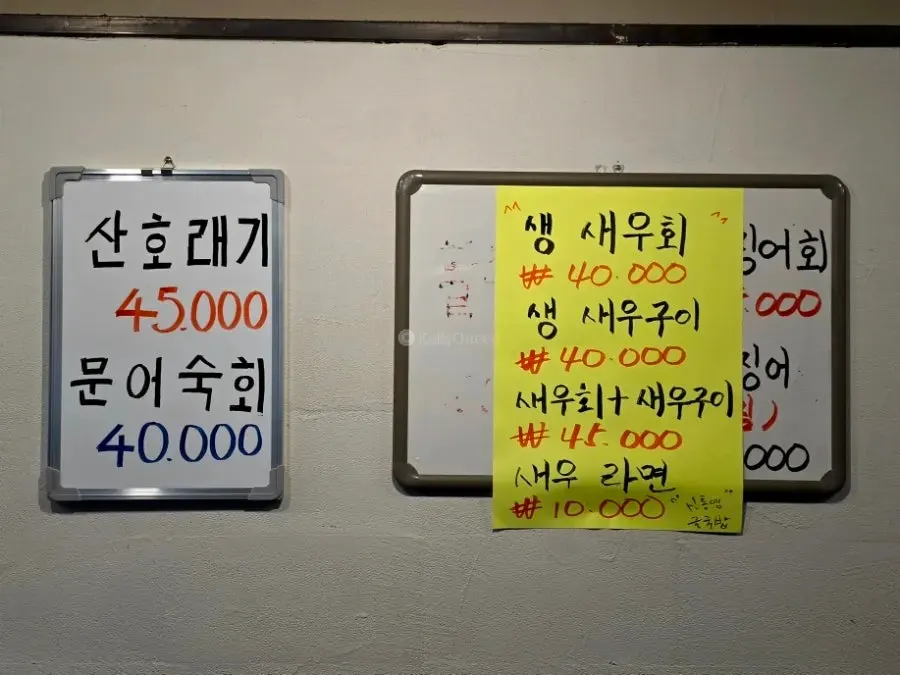 산호래기
45.000
문어숙회
40.000
생 새우회
₩ 40.000
생 새우구이
₩ 40.000
새우회+새우구이
₩ 45.000
새우 라면
₩ 10.000
굴국밥
징어회
.000
징어
000